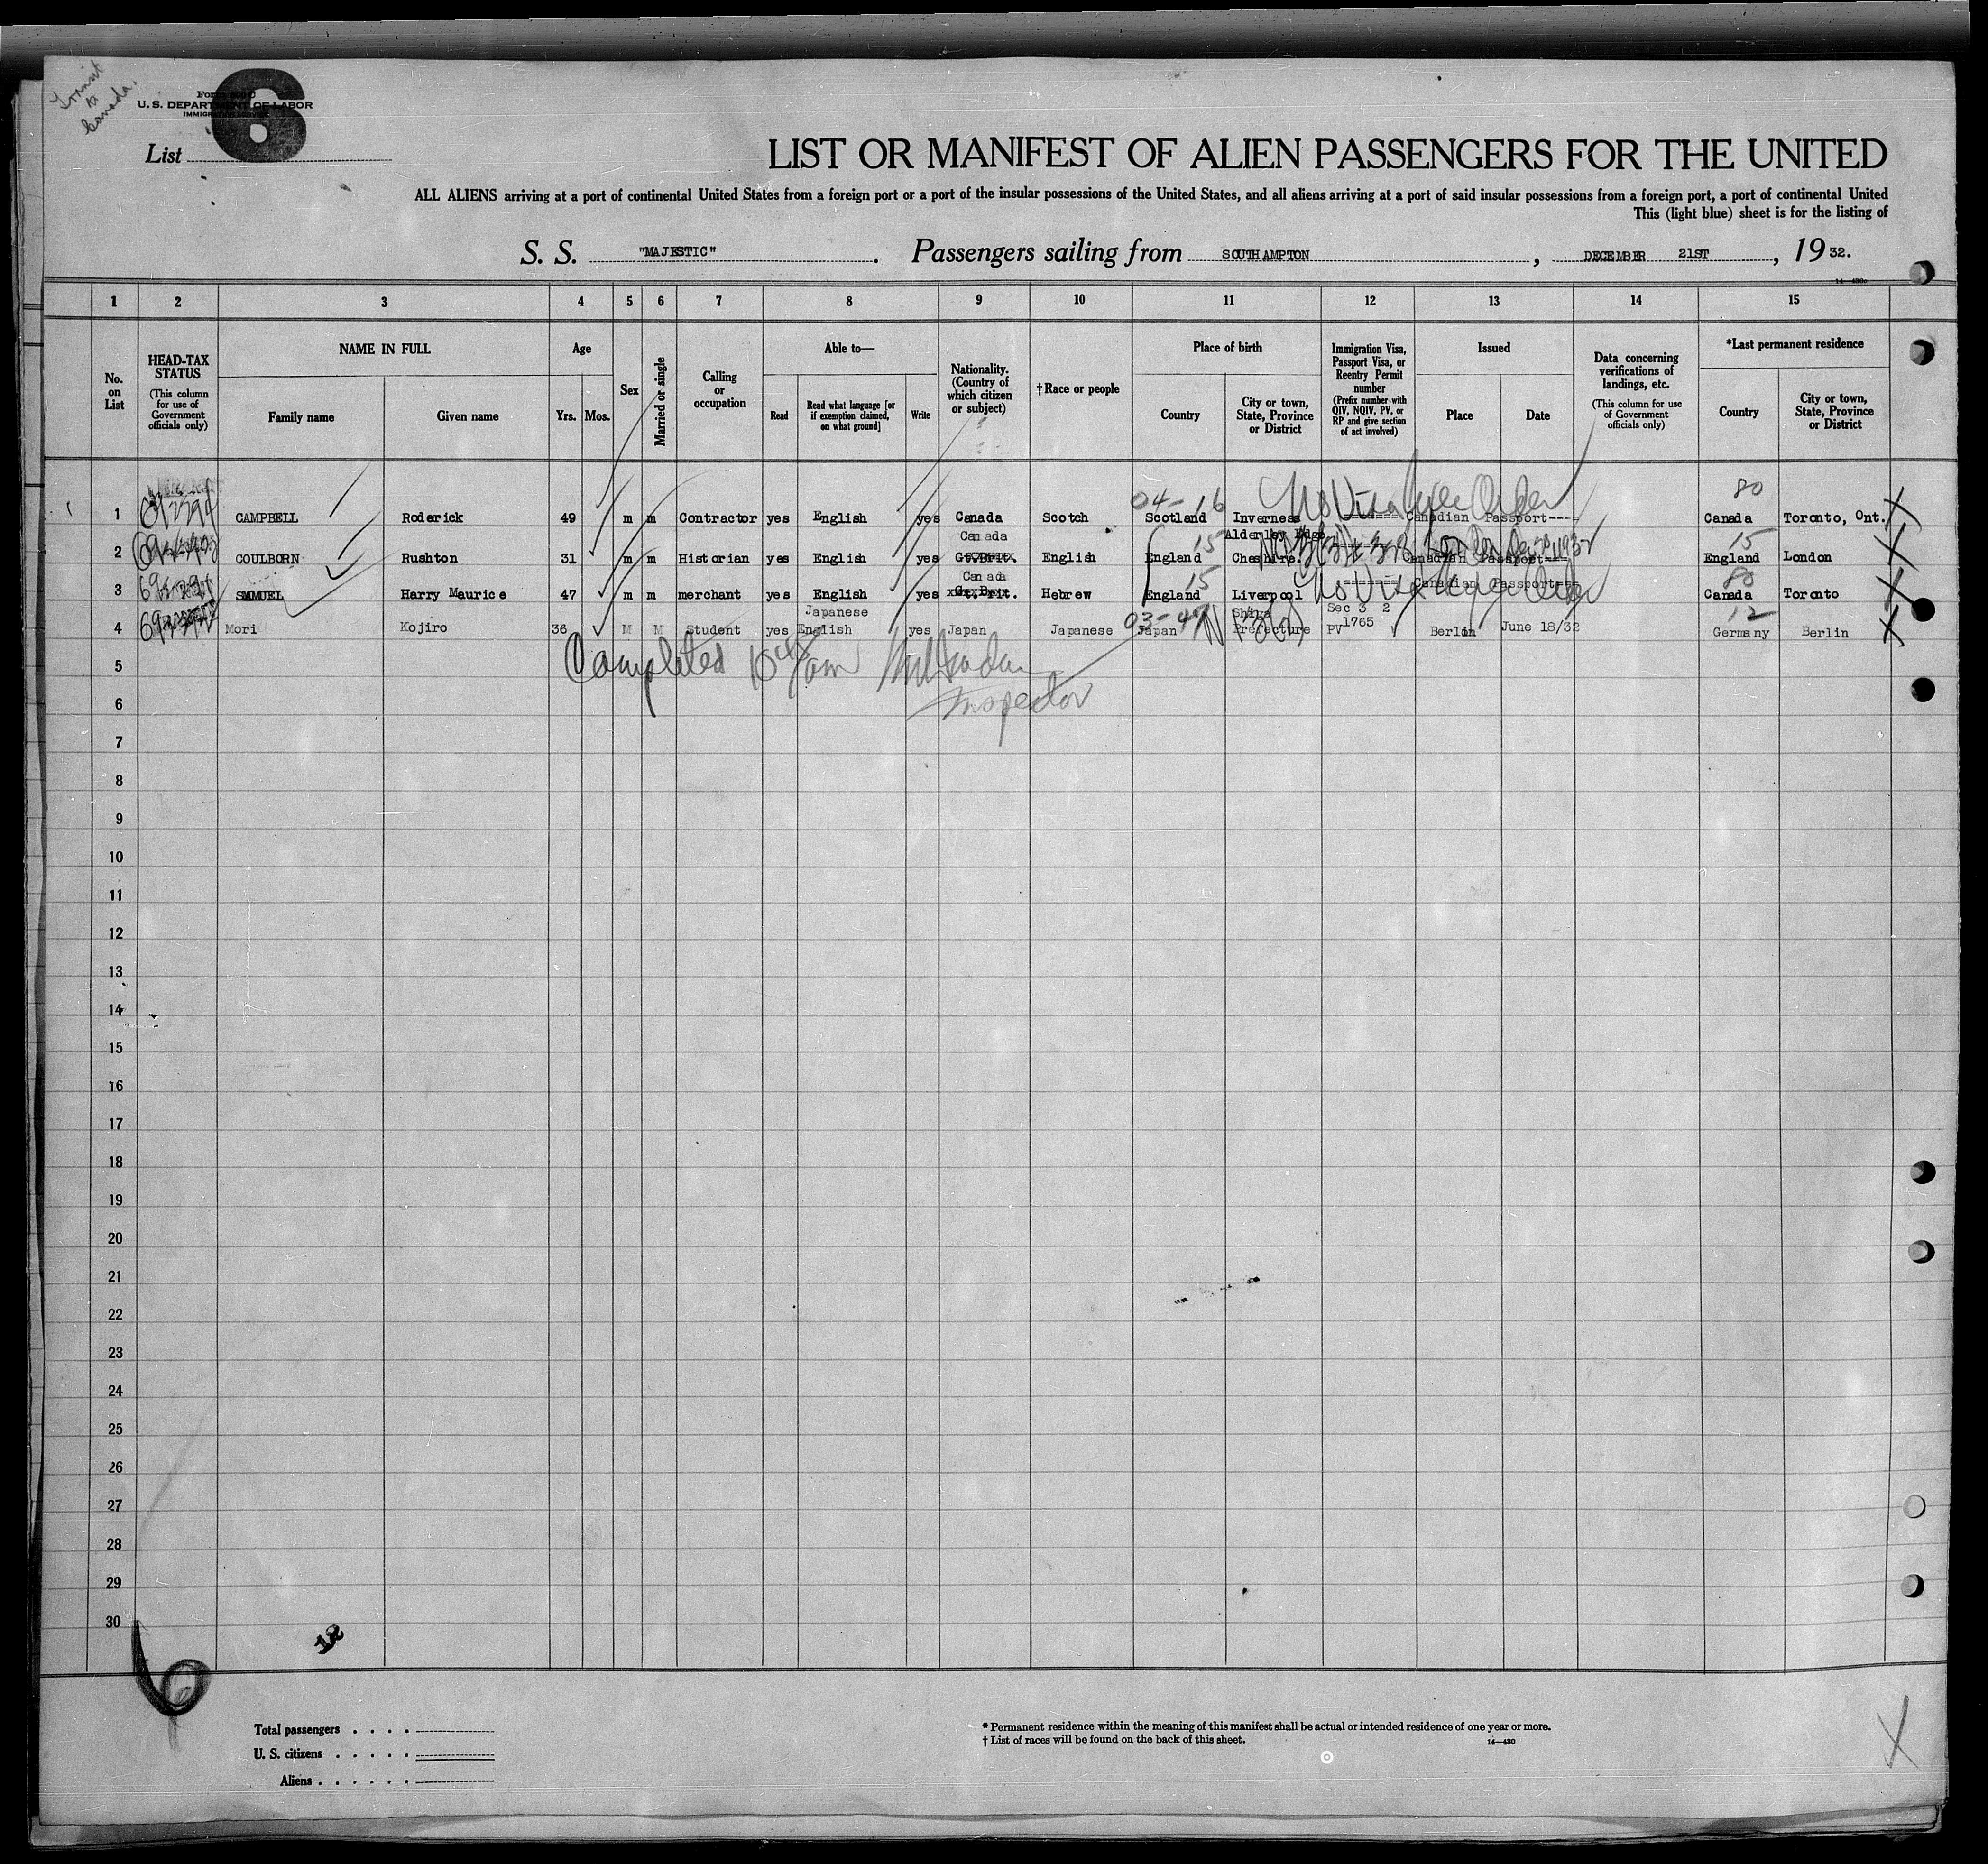 Transit
to
Canada.
6
U. S. DEPARTMENT OF LABOR
List
LIST OR MANIFEST OF ALIEN PASSENGERS FOR THE UNITED
ALL ALIENS arriving at a port of continental United States from a foreign port or a port of the insular possessions of the United States, and all aliens arriving at a port of said insular possessions from a foreign port, a port of continental United
This (light blue) sheet is for the listing of
S. S. "MAJESTIC". Passengers sailing from SOUTHAMPTON, DECEMBER 21ST, 19 32.
1 2 3 4 5 6 7 8 9 10 11 12 13 14 15
No. on List
HEAD-TAX STATUS (This column for use of Government officials only)
NAME IN FULL
Family name Given name
Age
Yrs. Mos.
Sex
Married or single
Calling or occupation
Able to—
Read Read what language [or if exemption claimed, on what ground] Write
Nationality. (Country of which citizen or subject)
†Race or people
Place of birth
Country City or town, State, Province or District
Immigration Visa, Passport Visa, or Reentry Permit number (Prefix number with QIV, NQIV, PV, or RP and give section of act involved)
Issued
Place Date
Data concerning verifications of landings, etc. (This column for use of Government officials only)
*Last permanent residence
Country City or town, State, Province or District
04-16 No Visa 80
1 CAMPBELL Roderick 49 m m Contractor yes English yes Canada Scotch Scotland Inverness Canadian Passport---- Canada Toronto, Ont.
Canada 15 Alderley Edge 15
2 COULBORN Rushton 31 m m Historian yes English yes Gt.Brit. English England Cheshire. Canadian Passport England London
Canada 15 No Visa 80
3 SAMUEL Harry Maurice 47 m m merchant yes English yes Gt.Brit. Hebrew England Liverpool Canadian Passport Canada Toronto
Japanese 03-47 Shiga Sec 3 2 12
4 Mori Kojiro 36 M M Student yes English yes Japan Japanese Japan Prefecture PV 1765 Berlin June 18/32 Germany Berlin
5 Completed
6 Inspector
7
8
9
10
11
12
13
14
15
16
17
18
19
20
21
22
23
24
25
26
27
28
29
30
12
6
Total passengers . . . .
U. S. citizens . . . . .
Aliens . . . . . .
* Permanent residence within the meaning of this manifest shall be actual or intended residence of one year or more.
† List of races will be found on the back of this sheet.
14—430